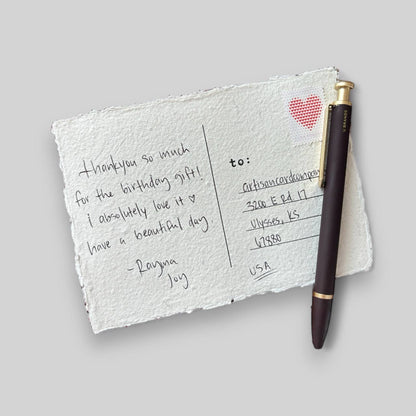 thankyou so much
for the birthday gift!
i absolutely love it ♡
have a beautiful day
-Rayma
Joy
to:
artisancardcompan
3200 E Rd 17
Ulysses, KS
67880
USA